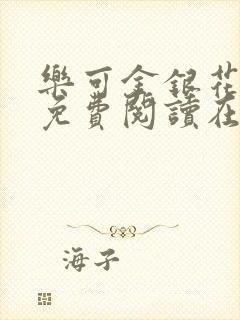 樂可金銀花
免費閱讀在
海子